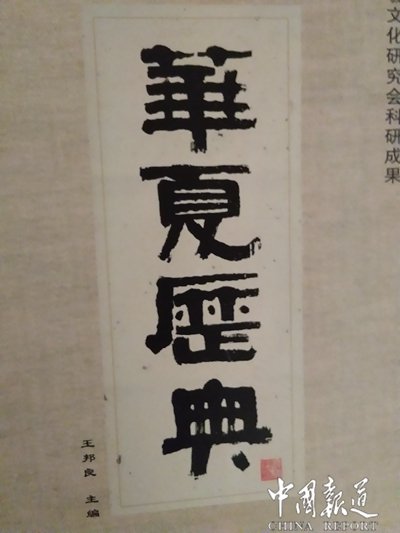 文化研究会科研成果
華夏歷典
王邦良 主编
中國報道
CHINA REPORT